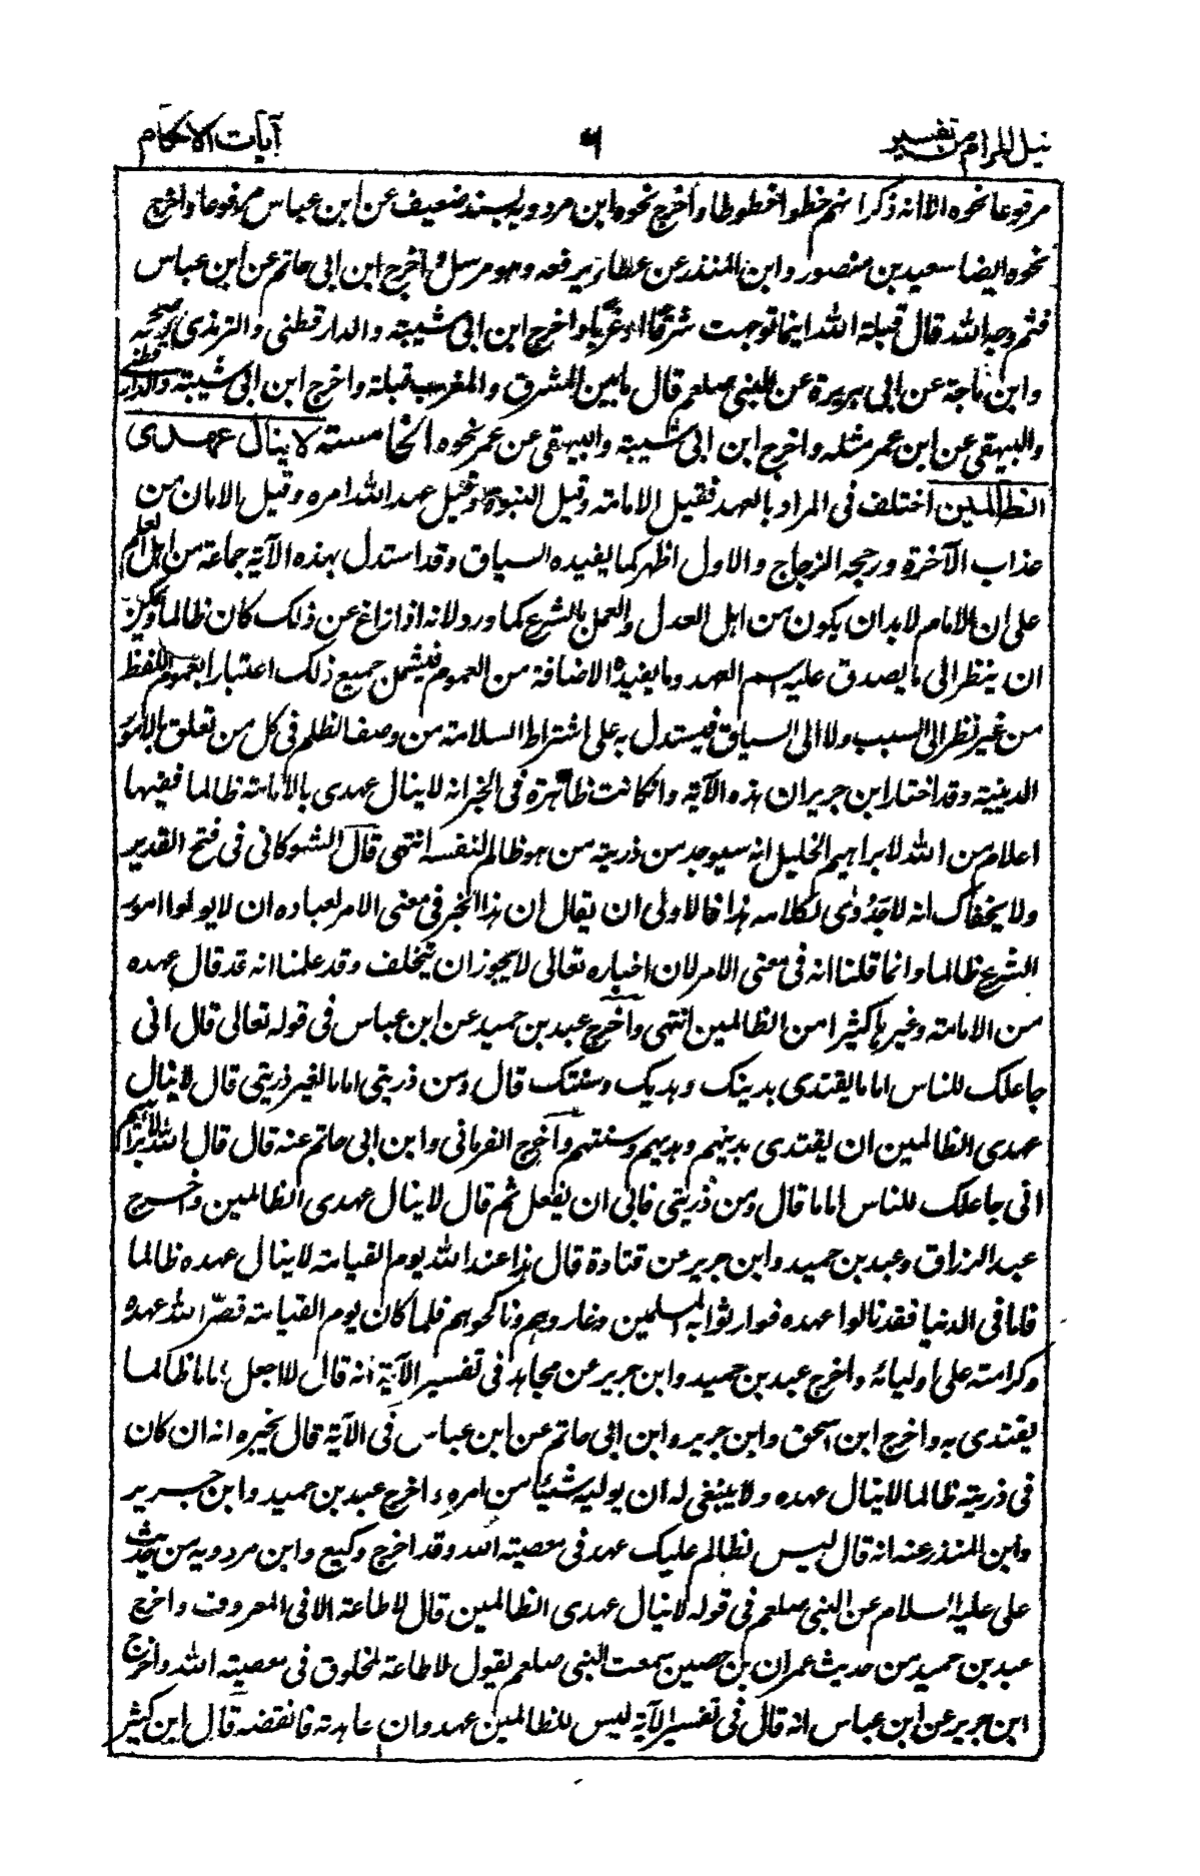 نيل المرام من تفسير
٦
آيات الاحكام
مرفوعا نحوه الا انه ذكر انهم خطوا خطوطا واخرج نحوه ابن مردويه بسند ضعيف عن ابن عباس مرفوعا واخرج
نحوه ايضا سعيد بن منصور وابن المنذر عن عطاء يرفعه وهو مرسل واخرج ابن ابي حاتم عن ابن عباس
فثم وجه الله قال قبلة الله اينما توجهت شرقا او غربا واخرج ابن ابي شيبة والدارقطني والترمذي وصححه
وابن ماجة عن ابي هريرة عن النبي صلعم قال ما بين المشرق والمغرب قبلة واخرج ابن ابي شيبة والدارقطني
والبيهقي عن ابن عمر مثله واخرج ابن ابي شيبة والبيهقي عن عمر نحوه الخامسة لا ينال عهدي
الظالمين اختلف في المراد بالعهد فقيل الامامة وقيل النبوة وقيل عهد الله امره وقيل الامان من
عذاب الآخرة ورجحه الزجاج والاول اظهر كما يفيده السياق وقد استدل بهذه الآية جماعة من اهل العلم
على ان الامام لا بد ان يكون من اهل العدل والعمل بالشرع كما ورد لانه اذا زاغ عن ذلك كان ظالما ويمكن
ان ينظر الى ما يصدق عليه اسم العهد وما يفيده الاضافة من العموم فيشمل جميع ذلك اعتبارا بعموم اللفظ
من غير نظر الى السبب ولا الى السياق فيستدل به على اشتراط السلامة من وصف الظلم في كل من تعلق بالامور
الدينية وقد اختار ابن جرير ان هذه الآية وان كانت ظاهرة في الخبر انه لا ينال عهدي بالامامة ظالما ففيها
اعلام من الله لابراهيم الخليل انه سيوجد من ذريته من هو ظالم لنفسه انتهى قال الشوكاني في فتح القدير
ولا يخفاك انه لا جدوى لكلامه هذا فالاولى ان يقال ان هذا الخبر في معنى الامر لعباده ان لا يولوا امور
الشرع ظالما وانما قلنا انه في معنى الامر لان اخباره تعالى لا يجوز ان يتخلف وقد علمنا انه قد نال عهده
من الامامة وغيرها كثيرا من الظالمين انتهى واخرج عبد بن حميد عن ابن عباس في قوله تعالى قال اني
جاعلك للناس اماما يقتدى بدينك وهديك وسنتك قال ومن ذريتي اماما لغير ذريتي قال لا ينال
عهدي الظالمين ان يقتدى بدينهم وهديهم وسنتهم واخرج الفريابي وابن ابي حاتم عنه قال قال الله لابراهيم
اني جاعلك للناس اماما قال ومن ذريتي فابى ان يفعل ثم قال لا ينال عهدي الظالمين واخرج
عبد الرزاق وعبد بن حميد وابن جرير عن قتادة قال هذا عند الله يوم القيامة لا ينال عهده ظالما
فاما في الدنيا فقد نالوا عهده فوارثوا به المسلمين وغازوهم وناكحوهم فلما كان يوم القيامة قصر الله عهده
وكرامته على اوليائه واخرج عبد بن حميد وابن جرير عن مجاهد في تفسير الآية انه قال لا اجعل اماما ظالما
يقتدى به واخرج ابن اسحق وابن جرير وابن ابي حاتم عن ابن عباس في الآية قال يخبره انه ان كان
في ذريته ظالما لا ينال عهده ولا ينبغي له ان يوليه شيئا من امره واخرج عبد بن حميد وابن جرير
وابن المنذر عنه انه قال ليس لظالم عليك عهد في معصية الله وقد اخرج وكيع وابن مردويه من حديث
علي عليه السلام عن النبي صلعم في قوله لا ينال عهدي الظالمين قال لا طاعة الا في المعروف واخرج
عبد بن حميد من حديث عمران بن حصين سمعت النبي صلعم يقول لا طاعة لمخلوق في معصية الله واخرج
ابن جرير عن ابن عباس انه قال في تفسير الآية ليس للظالمين عهد وان عاهدته فانقضه قال ابن كثير